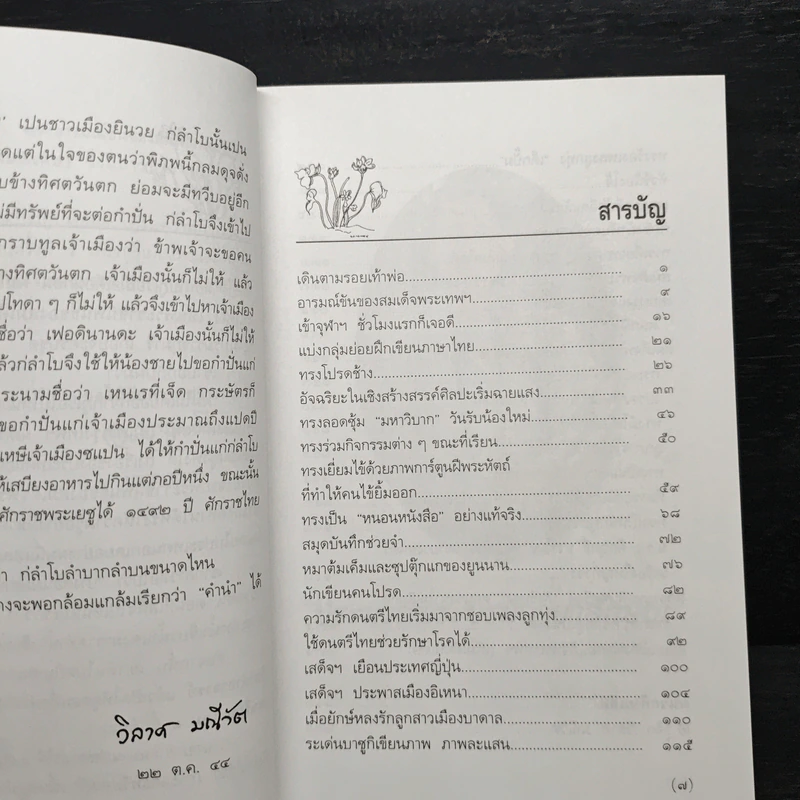 เปนชาวเมืองยินวย ก่ลำโบนั้นเปน
ดแต่ในใจของตนว่าพิภพนี้กลมดุจดั่ง
บข้างทิศตวันตก ย่อมจะมีทวีบอยู่อีก
ม่มีทรัพย์ที่จะต่อกำปั่น ก่ลำโบจึงเข้าไป
กราบทูลเจ้าเมืองว่า ข้าพเจ้าจะขอคน
างทิศตวันตก เจ้าเมืองนั้นก็ไม่ให้ แล้ว
ปโทดา ๆ ก็ไม่ให้ แล้วจึงเข้าไปหาเจ้าเมือง
ชื่อว่า เฟอดินานดะ เจ้าเมืองนั้นก็ไม่ให้
ล้วก่ลำโบจึงใช้ให้น้องชายไปขอกำปั่นแก่
ระนามชื่อว่า เหนเรที่เจ็ด กระษัตรก็
ขอกำปั่นแก่เจ้าเมืองประมาณถึงแปดปี
เหษีเจ้าเมืองซแปน ได้ให้กำปั่นแก่ก่ลำโบ
ห้เสบียงอาหารไปกินแต่ภอปีหนึ่ง ขณะนั้น
ศักราชพระเยซูได้ ๑๔๙๒ ปี ศักราชไทย
า ก่ลำโบลำบากลำบนขนาดไหน
างจะพอกล้อมแกล้มเรียกว่า “คำนำ” ได้
วิลาศ มณีวัต
๒๒ ต.ค. ๔๔
สารบัญ
เดินตามรอยเท้าพ่อ.......... ๑
อารมณ์ขันของสมเด็จพระเทพฯ.......... ๙
เข้าจุฬาฯ ชั่วโมงแรกก็เจอดี.......... ๑๖
แบ่งกลุ่มย่อยฝึกเขียนภาษาไทย.......... ๒๑
ทรงโปรดช้าง.......... ๒๖
อัจฉริยะในเชิงสร้างสรรค์ศิลปะเริ่มฉายแสง.......... ๓๓
ทรงลอดซุ้ม “มหาวิบาก” วันรับน้องใหม่.......... ๔๖
ทรงร่วมกิจกรรมต่าง ๆ ขณะที่เรียน.......... ๕๐
ทรงเยี่ยมไข้ด้วยภาพการ์ตูนฝีพระหัตถ์
ที่ทำให้คนไข้ยิ้มออก.......... ๕๙
ทรงเป็น “หนอนหนังสือ” อย่างแท้จริง.......... ๖๘
สมุดบันทึกช่วยจำ.......... ๗๒
หมาต้มเค็มและซุปตุ๊กแกของยูนนาน.......... ๗๖
นักเขียนคนโปรด.......... ๘๒
ความรักดนตรีไทยเริ่มมาจากชอบเพลงลูกทุ่ง.......... ๘๙
ใช้ดนตรีไทยช่วยรักษาโรคได้.......... ๙๒
เสด็จฯ เยือนประเทศญี่ปุ่น.......... ๑๐๐
เสด็จฯ ประพาสเมืองอิเหนา.......... ๑๐๔
เมื่อยักษ์หลงรักลูกสาวเมืองบาดาล.......... ๑๑๐
ระเด่นบาซูกิเขียนภาพ ภาพละแสน.......... ๑๑๕
(๗)